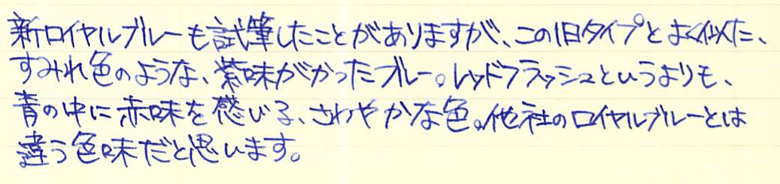 新ロイヤルブルーも試筆したことがありますが、この旧タイプとよく似た、
すみれ色のような、紫味がかったブルー。レッドフラッシュというよりも、
青の中に赤味を感じる、さわやかな色。他社のロイヤルブルーとは
違う色味だと思います。